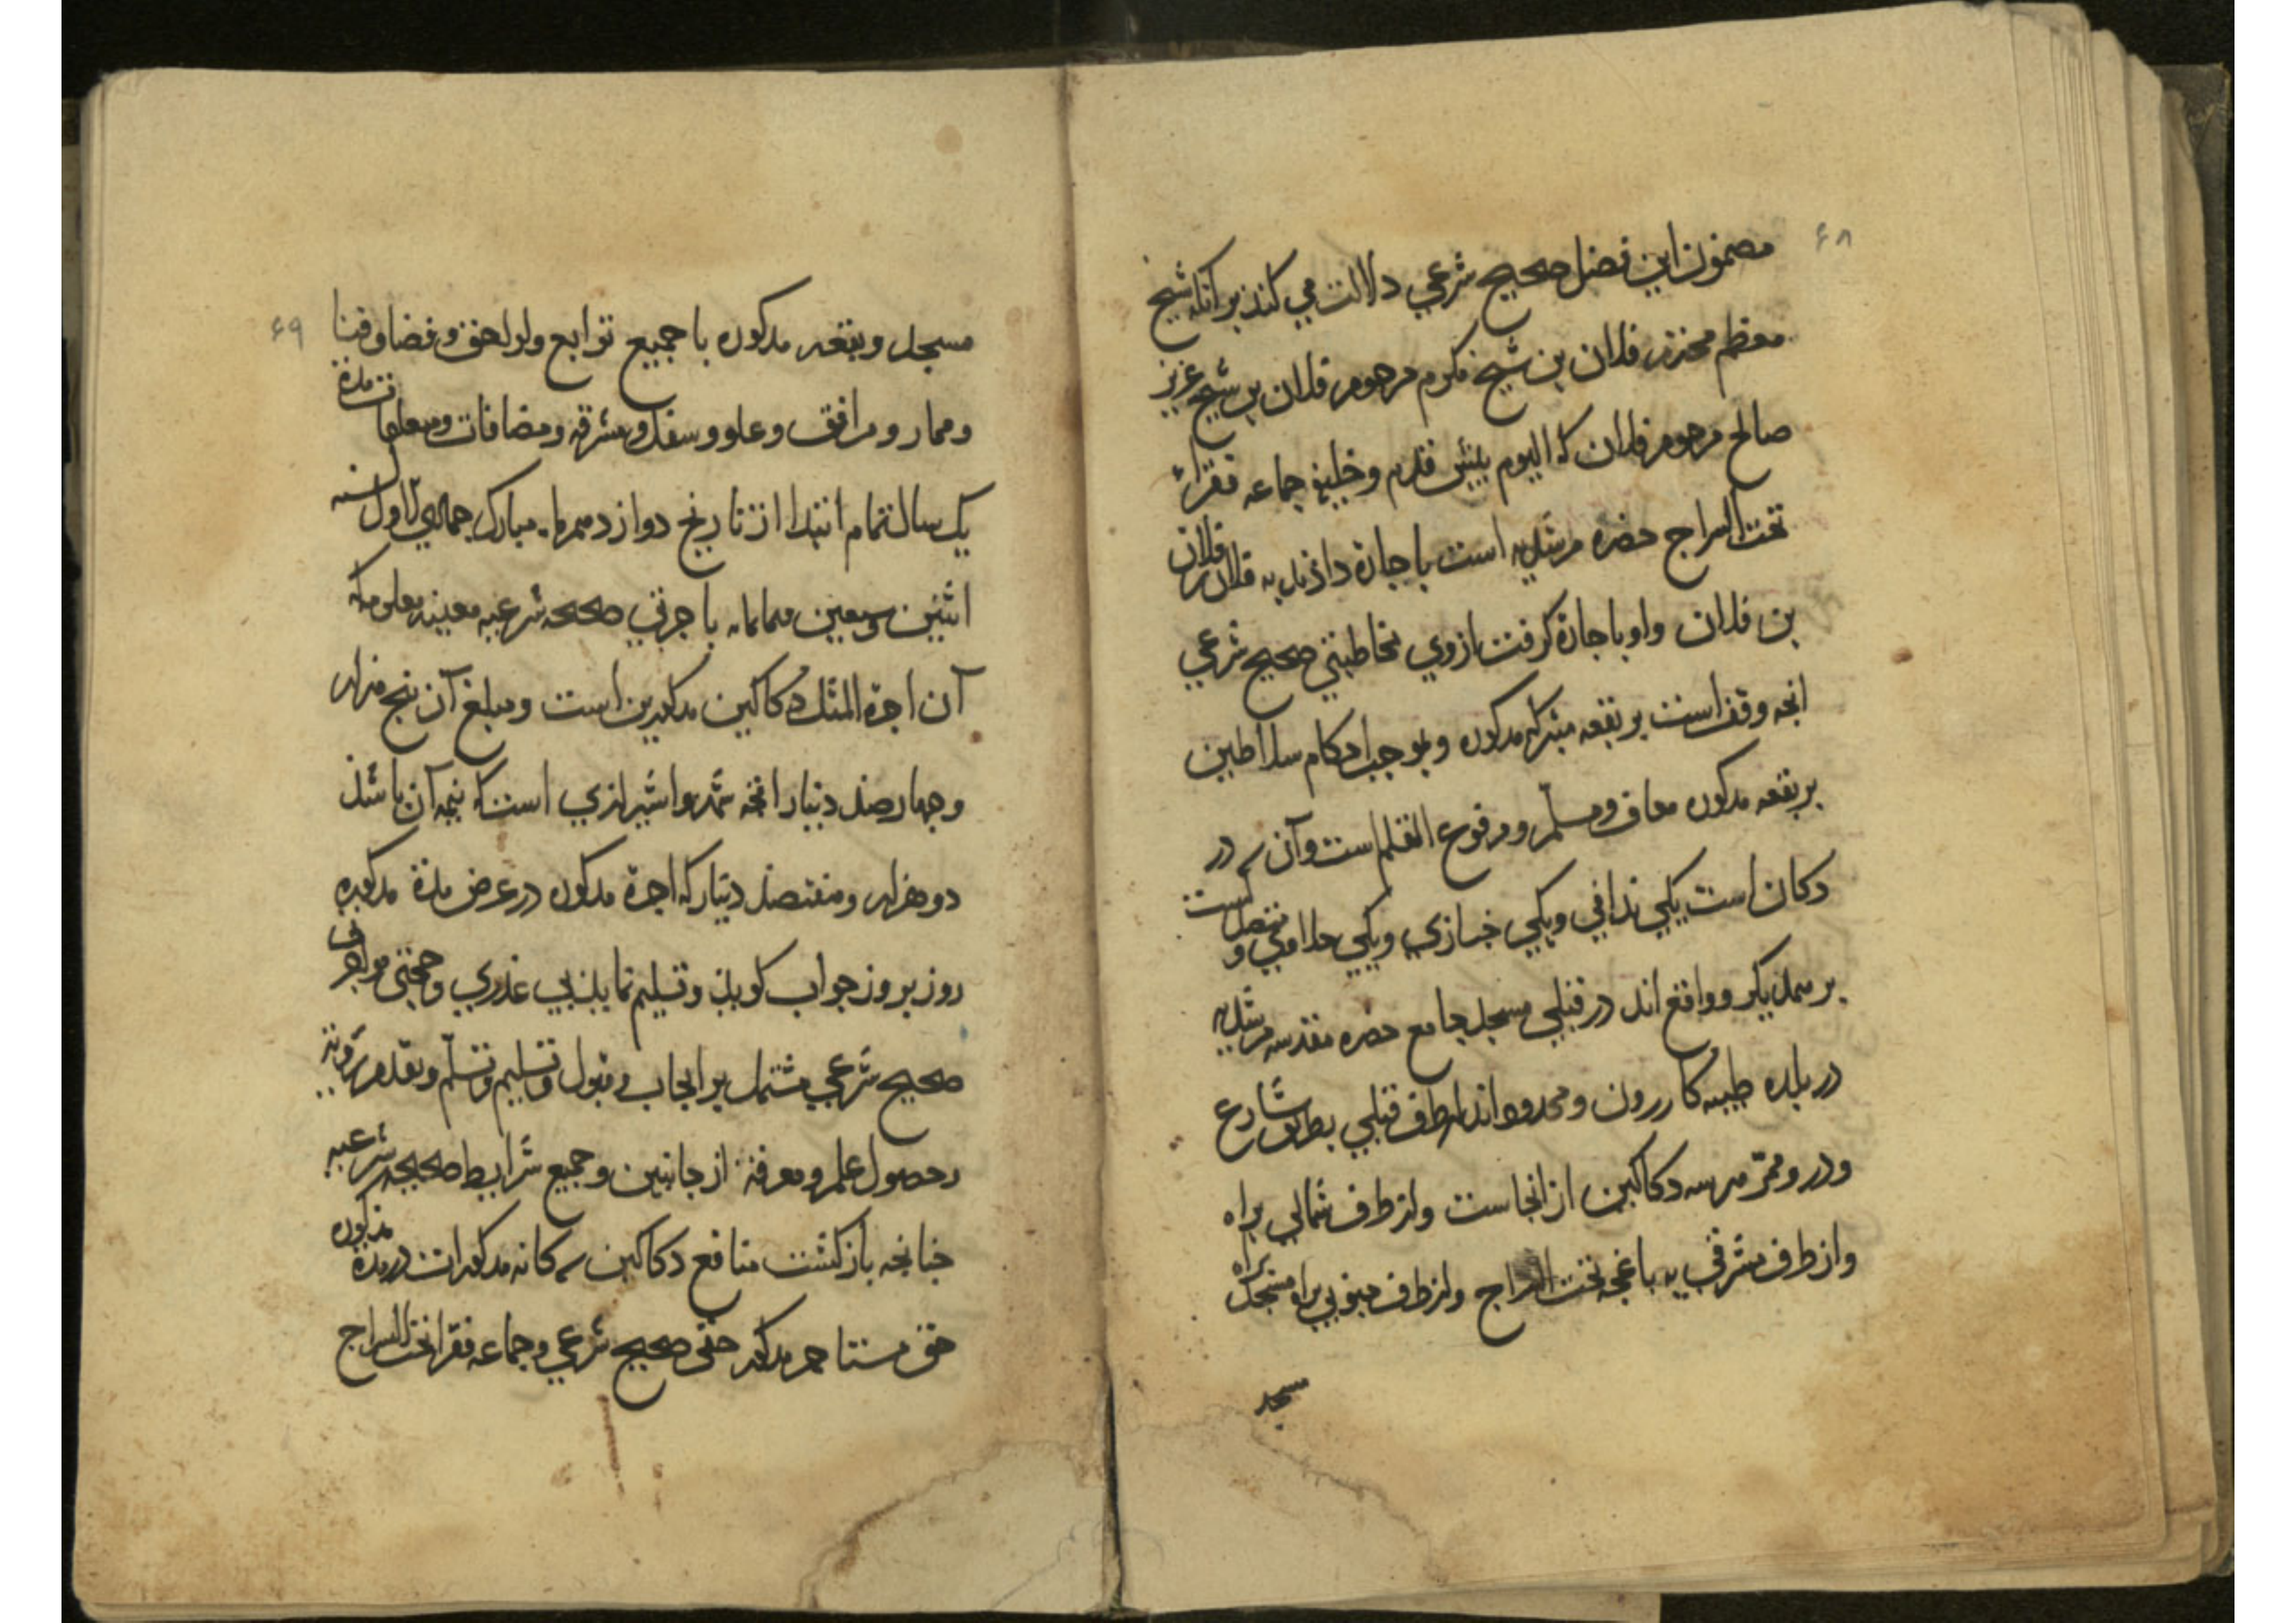 ۶۸
مضمون این فصل صحیح شرعی دلالت می کند بر آنکه شیخ
معظم محترم فلان بن شیخ مکرم مرحوم فلان بن شیخ عزیز
صالح مرحوم فلان که الیوم و خلیفه جماعه فقراء
تحت السراج حضره مرشدیه است باجازة داد به فلان بن فلان
بن فلان و او باجازة گرفت از وی صحیح شرعی
انچه وقف است بر بقعه متبرکه مذکوره و بموجب احکام سلاطین
بر بقعه مذکوره معاف و مسلّم و مرفوع القلم است و آن سه در
دکان است یکی ندافی و یکی خبازی و یکی و متصل است
بر همدیگر و واقع اند در قبلی مسجد جامع حضره مقدسه مرشدیه
در بلده طیبه کازرون و محدود اند از طرف قبلی بطریق شارع
و در و ممرّ هر سه دکاکین از انجاست و از طرف شمالی براه
و از طرف شرقی به باغچه تحت السراج و از طرف جنوبی براه مسجد
مسجد
۶۹
مسجد و بقعه مذکوره با جمیع توابع و لواحق و فضا و فنا
و ممار و مرافق و علو و سفل و مشرقه و مضافات و معلقات مدة
یک سال تمام ابتدا از تاریخ دوازدهم ماه مبارک جمادی الاول سنه
اثنین و سبعین ثمانمائه باجرتی صحیحه شرعیه معینه معلومه که
آن اجرة المثل دکاکین مذکورین است و مبلغ آن پنج هزار
و چهارصد دینار شیرازی است که نیمه آن باشد
دو هزار و هفتصد دینار که اجرة مذکوره در عرض مدة مذکوره
روز بروز جواب گوید و تسلیم نماید بی عذری و حجتی
صحیح شرعی مشتمل بر ایجاب و قبول و تسلیم و تسلّم و تقدم رؤیة
و حصول علم و معرفة از جانبین و جمیع شرایط صحیحه شرعیه
چنانچه بازگشت منافع دکاکین سه گانه مذکورات در مدة مذکوره
حق مستاجر مذکور حقی صحیح شرعی و جماعه فقراء تحت السراج